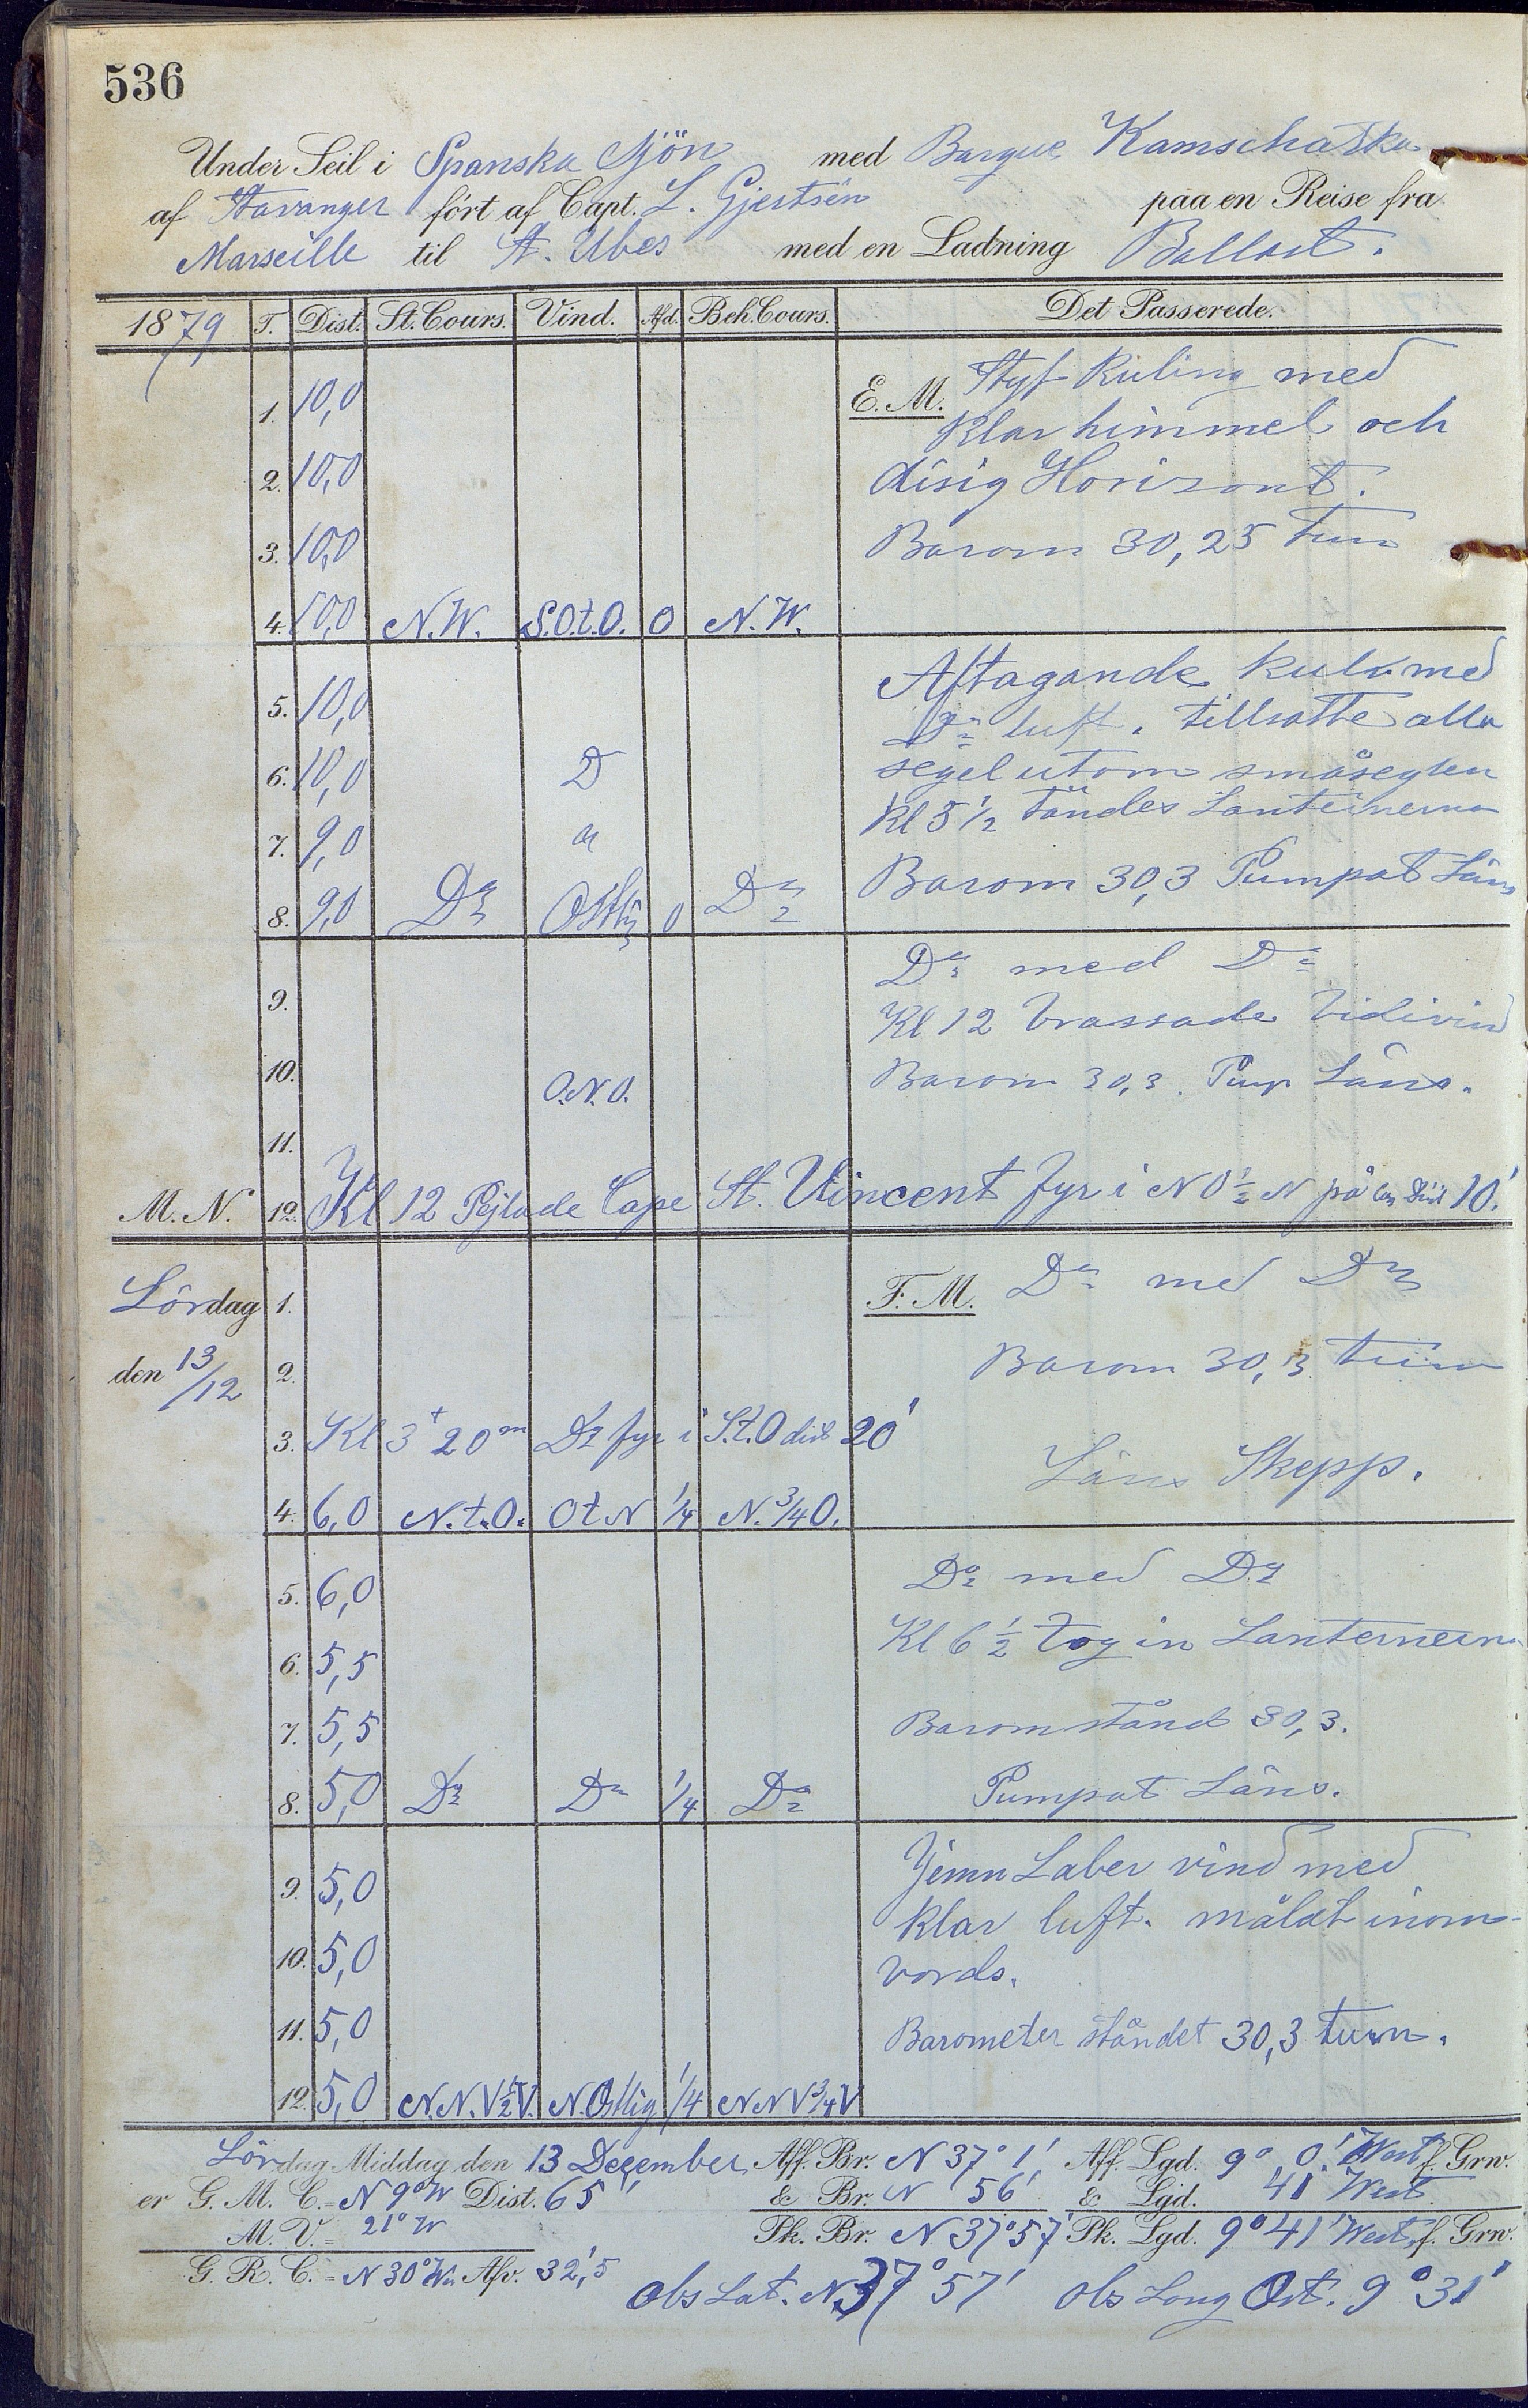 536
Under Seil i Spanska Sjön med Barque Kamschatka
af Stavanger ført af Capt. L. Gjertsen paa en Reise fra
Marseille til St. Ubes med en Ladning Ballast.
1879 T. Dist. St. Cours. Vind. Afd. Beh. Cours. Det Passerede.
1. 10,0 E. M. Styf Kuling med
Klar himmel och
2. 10,0 disig Horizont.
3. 10,0 Barom 30,25 tum
4. 10,0 N.W. S.O.t.O. 0 N.W.
Aftagande kul med
5. 10,0 Do luft. tillsatte alla
6. 10,0 D segel utom småseglen
Kl 5 1/2 tändes Lanternerna
7. 9,0 a
8. 9,0 Do Ostlig 0 Do Barom 30,3 Pumpat Läns
Do med Do
9. Kl 12 brassade Vidivind
10. O.N.O. Barom 30,3. Pump Läns.
11.
M. N. 12. Kl 12 Pejlade Cape St. Vincent fyr i NO 1/2 N på Dist 10'
Lördag 1. F. M. Do med Do
den 13/12 2. Barom 30,3 tum
3. Kl 3t 20m Do fyr i S.t.O dist 20'
Läns Skepp.
4. 6,0 N.t.O. OtN 1/4 N. 3/4 O.
5. 6,0 Do med Do
6. 5,5 Kl 6 1/2 tog in Lanternerna
7. 5,5 Baromstånd 30,3.
8. 5,0 Do Do 1/4 Do Pumpat Läns.
9. 5,0 Jemn Laber vind med
klar luft. målat inom-
10. 5,0 vords.
11. 5,0 Barometer ståndet 30,3 tum.
12. 5,0 N.N.V 1/2 V. N.Ostlig 1/4 NNV 3/4 V
Lördag Middag den 13 December Aff. Br. N 37° 1' Aff. Lgd. 9° 0' West f. Grw.
er G. M. C. = N 9° W Dist. 65' & Br. N 56' & Lgd. 41' West
M. V. = 21° W Pk. Br. N 37° 57' Pk. Lgd. 9° 41' West f. Grw.
G. R. C. = N 30° W Afv. 32,'5
Obs Lat. N 37° 57' Obs Long Ost. 9° 31'